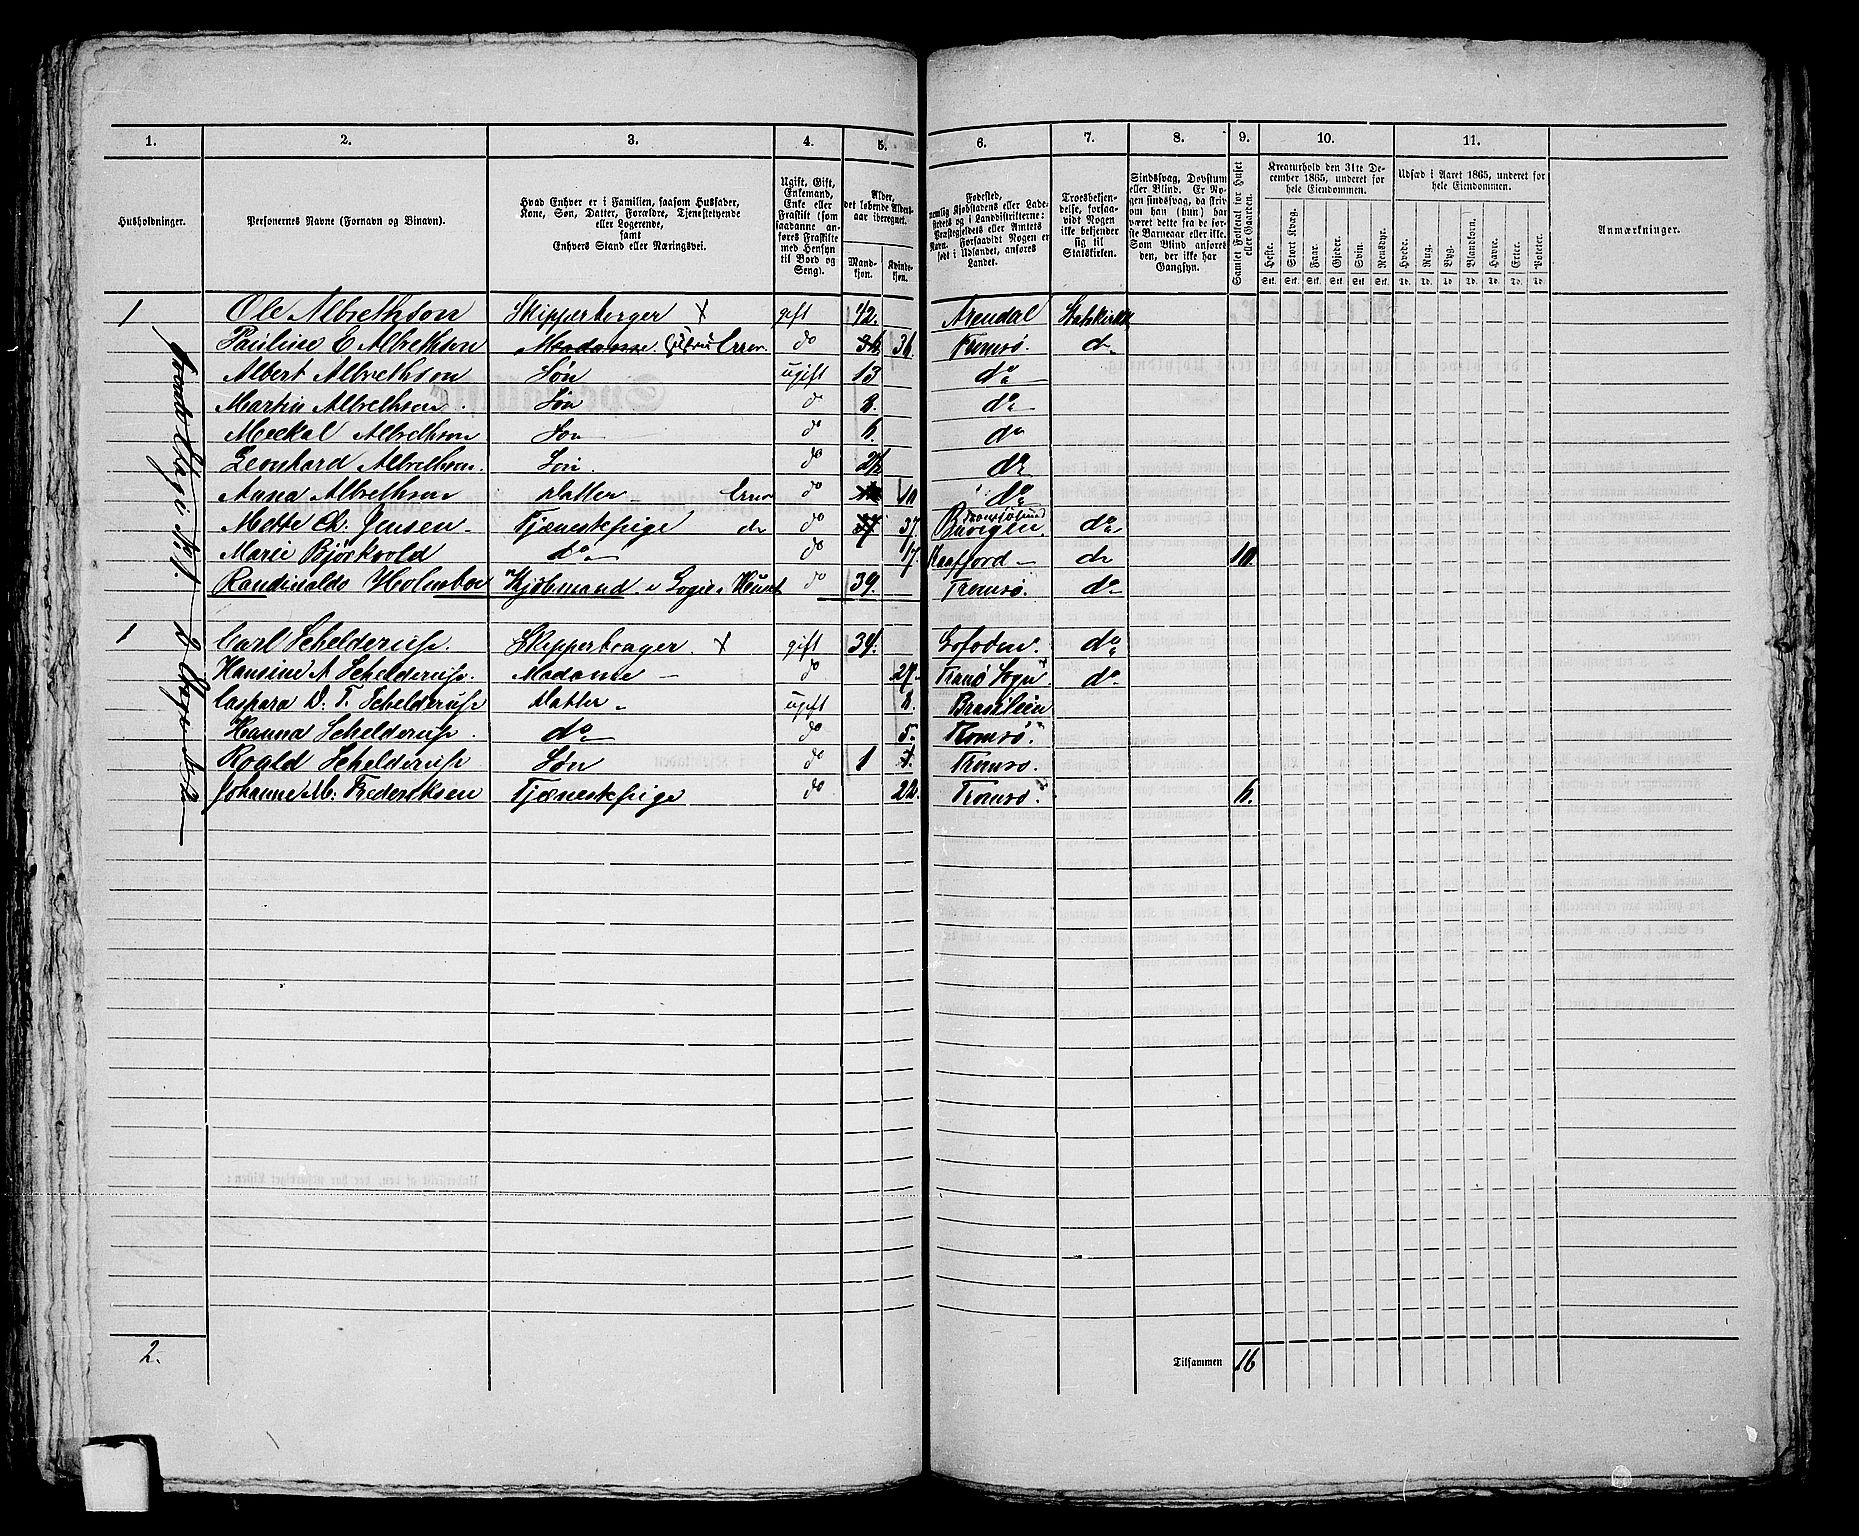 1. 2. 3. 4. 5. 6. 7. 8. 9. 10. 11.
Husholdninger.
Personernes Navne (Fornavn og Binavn).
Hvad Enhver er i Familien, saasom Husfader,
Kone, Søn, Datter, Forældre, Tjenestetyende
eller Logerende,
samt
Enhvers Stand eller Næringsvei.
Ugift, Gift,
Enkemand,
Enke eller
Fraskilt (som
saadanne an-
føres Fraskilte
med Hensyn
til Bord og
Seng).
Alder,
det løbende Alders-
aar iberegnet.
Mand-
kjøn.
Kvinde-
kjøn.
Fødested,
nemlig Kjøbstadens eller Lade-
stedets og i Landdistrikterne:
Præstegjeldets eller Amtets
Navn. Forsaavidt Nogen er
født i Udlandet, anføres
Landet.
Troesbekjen-
delse, forsaa-
vidt Nogen
ikke bekjender
sig til
Statskirken.
Sindssvag, Døvstum
eller Blind. Er No-
gen sindssvag, da skriv
om han (hun) har
været dette fra de før-
ste Barneaar eller ikke.
Som Blind anføres
den, der ikke har
Gangsyn.
Samlet Folketal for Huset
eller Gaarden.
Kreaturhold den 31te De-
cember 1865, underet for
hele Eiendommen.
Heste. Stort Kvæg. Faar. Gjeder. Svin. Rensdyr.
Stk. Stk. Stk. Stk. Stk. Stk.
Udsæd i Aaret 1865, underet for
hele Eiendommen.
Hvede. Rug. Byg. Blandkorn. Havre. Erter. Poteter.
Td. Td. Td. Td. Td. Td. Td.
Anmærkninger.
1 Ole Albrethson Skipperborger × gift 42. Arendal Statskirke
Pauline C Albrethson Madame. Error do 36 36. Tromsø. do
Albert Albrethson Søn ugift 13 do
Martin Albrethson Søn do 8. do
Meckal Albrethson Søn do 6. do
Leonhard Albrethson. Søn. do do
Anna Albrethson Datter Error do 10 do
Mette Ch. Jensen Tjænestepige do do 37 37. Tromsøsund do
Marie Bjørkvold do do 17. Kaafjord do 10.
Randinaldo Holmboe Kjøbmand Logerende do 39. Tromsø. do
1 Carl Schelderup. Skipperborger × gift 34. Lofoden. do
Hansine A Schelderup. Madame do 27. Tranø Sogn do
Caspara D. T. Schelderup Datter ugift 8. Brasilien
Hanna Schelderup. do do 5. Tromsø.
Roald Schelderup Søn do 1 1. Tromsø.
Johanne M. Frederiksen Tjænestepige do 22. Tromsø. 6.
2. Tilsammen 16